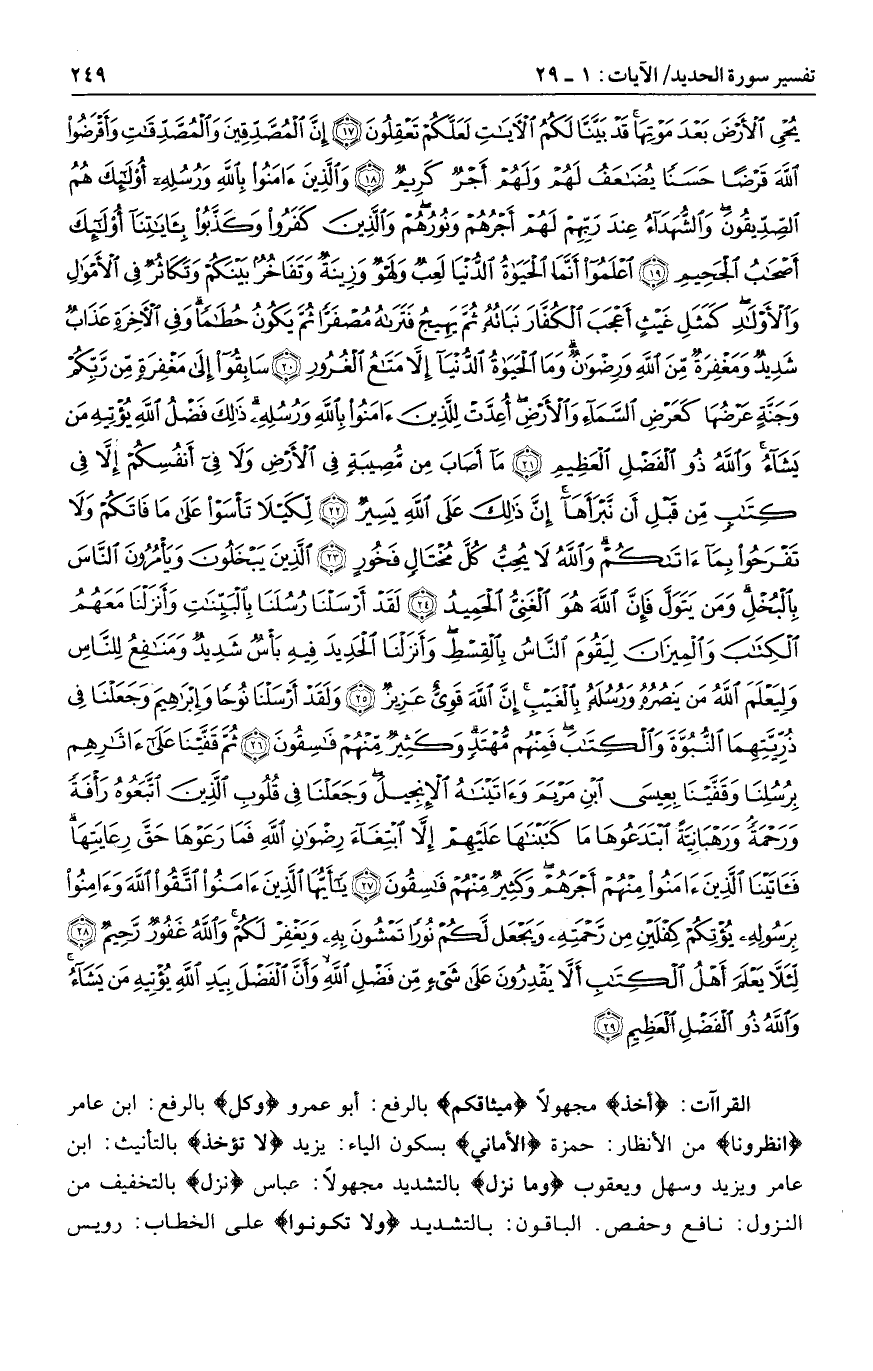 تفسير سورة الحديد/ الآيات: ١ ـ ٢٩ ٢٤٩
يُحْيِ ٱلْأَرْضَ بَعْدَ مَوْتِهَا ۚ قَدْ بَيَّنَّا لَكُمُ ٱلْآيَٰتِ لَعَلَّكُمْ تَعْقِلُونَ ﴿١٧﴾ إِنَّ ٱلْمُصَّدِّقِينَ وَٱلْمُصَّدِّقَٰتِ وَأَقْرَضُوا۟
ٱللَّهَ قَرْضًا حَسَنًا يُضَٰعَفُ لَهُمْ وَلَهُمْ أَجْرٌ كَرِيمٌ ﴿١٨﴾ وَٱلَّذِينَ ءَامَنُوا۟ بِٱللَّهِ وَرُسُلِهِۦٓ أُو۟لَٰٓئِكَ هُمُ
ٱلصِّدِّيقُونَ ۖ وَٱلشُّهَدَآءُ عِندَ رَبِّهِمْ لَهُمْ أَجْرُهُمْ وَنُورُهُمْ ۖ وَٱلَّذِينَ كَفَرُوا۟ وَكَذَّبُوا۟ بِـَٔايَٰتِنَآ أُو۟لَٰٓئِكَ
أَصْحَٰبُ ٱلْجَحِيمِ ﴿١٩﴾ ٱعْلَمُوٓا۟ أَنَّمَا ٱلْحَيَوٰةُ ٱلدُّنْيَا لَعِبٌ وَلَهْوٌ وَزِينَةٌ وَتَفَاخُرٌۢ بَيْنَكُمْ وَتَكَاثُرٌ فِى ٱلْأَمْوَٰلِ
وَٱلْأَوْلَٰدِ ۖ كَمَثَلِ غَيْثٍ أَعْجَبَ ٱلْكُفَّارَ نَبَاتُهُۥ ثُمَّ يَهِيجُ فَتَرَىٰهُ مُصْفَرًّا ثُمَّ يَكُونُ حُطَٰمًا ۖ وَفِى ٱلْآخِرَةِ عَذَابٌ
شَدِيدٌ وَمَغْفِرَةٌ مِّنَ ٱللَّهِ وَرِضْوَٰنٌ ۚ وَمَا ٱلْحَيَوٰةُ ٱلدُّنْيَآ إِلَّا مَتَٰعُ ٱلْغُرُورِ ﴿٢٠﴾ سَابِقُوٓا۟ إِلَىٰ مَغْفِرَةٍ مِّن رَّبِّكُمْ
وَجَنَّةٍ عَرْضُهَا كَعَرْضِ ٱلسَّمَآءِ وَٱلْأَرْضِ أُعِدَّتْ لِلَّذِينَ ءَامَنُوا۟ بِٱللَّهِ وَرُسُلِهِۦ ۚ ذَٰلِكَ فَضْلُ ٱللَّهِ يُؤْتِيهِ مَن
يَشَآءُ ۚ وَٱللَّهُ ذُو ٱلْفَضْلِ ٱلْعَظِيمِ ﴿٢١﴾ مَآ أَصَابَ مِن مُّصِيبَةٍ فِى ٱلْأَرْضِ وَلَا فِىٓ أَنفُسِكُمْ إِلَّا فِى
كِتَٰبٍ مِّن قَبْلِ أَن نَّبْرَأَهَآ ۚ إِنَّ ذَٰلِكَ عَلَى ٱللَّهِ يَسِيرٌ ﴿٢٢﴾ لِّكَيْلَا تَأْسَوْا۟ عَلَىٰ مَا فَاتَكُمْ وَلَا
تَفْرَحُوا۟ بِمَآ ءَاتَىٰكُمْ ۗ وَٱللَّهُ لَا يُحِبُّ كُلَّ مُخْتَالٍ فَخُورٍ ﴿٢٣﴾ ٱلَّذِينَ يَبْخَلُونَ وَيَأْمُرُونَ ٱلنَّاسَ
بِٱلْبُخْلِ ۗ وَمَن يَتَوَلَّ فَإِنَّ ٱللَّهَ هُوَ ٱلْغَنِىُّ ٱلْحَمِيدُ ﴿٢٤﴾ لَقَدْ أَرْسَلْنَا رُسُلَنَا بِٱلْبَيِّنَٰتِ وَأَنزَلْنَا مَعَهُمُ
ٱلْكِتَٰبَ وَٱلْمِيزَانَ لِيَقُومَ ٱلنَّاسُ بِٱلْقِسْطِ ۖ وَأَنزَلْنَا ٱلْحَدِيدَ فِيهِ بَأْسٌ شَدِيدٌ وَمَنَٰفِعُ لِلنَّاسِ
وَلِيَعْلَمَ ٱللَّهُ مَن يَنصُرُهُۥ وَرُسُلَهُۥ بِٱلْغَيْبِ ۚ إِنَّ ٱللَّهَ قَوِىٌّ عَزِيزٌ ﴿٢٥﴾ وَلَقَدْ أَرْسَلْنَا نُوحًا وَإِبْرَٰهِيمَ وَجَعَلْنَا فِى
ذُرِّيَّتِهِمَا ٱلنُّبُوَّةَ وَٱلْكِتَٰبَ ۖ فَمِنْهُم مُّهْتَدٍ ۖ وَكَثِيرٌ مِّنْهُمْ فَٰسِقُونَ ﴿٢٦﴾ ثُمَّ قَفَّيْنَا عَلَىٰٓ ءَاثَٰرِهِم
بِرُسُلِنَا وَقَفَّيْنَا بِعِيسَى ٱبْنِ مَرْيَمَ وَءَاتَيْنَٰهُ ٱلْإِنجِيلَ ۖ وَجَعَلْنَا فِى قُلُوبِ ٱلَّذِينَ ٱتَّبَعُوهُ رَأْفَةً
وَرَحْمَةً وَرَهْبَانِيَّةً ٱبْتَدَعُوهَا مَا كَتَبْنَٰهَا عَلَيْهِمْ إِلَّا ٱبْتِغَآءَ رِضْوَٰنِ ٱللَّهِ فَمَا رَعَوْهَا حَقَّ رِعَايَتِهَا ۖ
فَـَٔاتَيْنَا ٱلَّذِينَ ءَامَنُوا۟ مِنْهُمْ أَجْرَهُمْ ۖ وَكَثِيرٌ مِّنْهُمْ فَٰسِقُونَ ﴿٢٧﴾ يَٰٓأَيُّهَا ٱلَّذِينَ ءَامَنُوا۟ ٱتَّقُوا۟ ٱللَّهَ وَءَامِنُوا۟
بِرَسُولِهِۦ يُؤْتِكُمْ كِفْلَيْنِ مِن رَّحْمَتِهِۦ وَيَجْعَل لَّكُمْ نُورًا تَمْشُونَ بِهِۦ وَيَغْفِرْ لَكُمْ ۚ وَٱللَّهُ غَفُورٌ رَّحِيمٌ ﴿٢٨﴾
لِّئَلَّا يَعْلَمَ أَهْلُ ٱلْكِتَٰبِ أَلَّا يَقْدِرُونَ عَلَىٰ شَىْءٍ مِّن فَضْلِ ٱللَّهِ ۙ وَأَنَّ ٱلْفَضْلَ بِيَدِ ٱللَّهِ يُؤْتِيهِ مَن يَشَآءُ ۚ
وَٱللَّهُ ذُو ٱلْفَضْلِ ٱلْعَظِيمِ ﴿٢٩﴾
القراآت: ﴿أخذ﴾ مجهولاً ﴿ميثاقكم﴾ بالرفع: أبو عمرو ﴿وكل﴾ بالرفع: ابن عامر
﴿انظرونا﴾ من الأنظار: حمزة ﴿الأماني﴾ بسكون الياء: يزيد ﴿لا تؤخذ﴾ بالتأنيث: ابن
عامر ويزيد وسهل ويعقوب ﴿وما نزل﴾ بالتشديد مجهولاً: عباس ﴿نزل﴾ بالتخفيف من
النزول: نافع وحفص. الباقون: بالتشديد ﴿ولا تكونوا﴾ على الخطاب: رويس